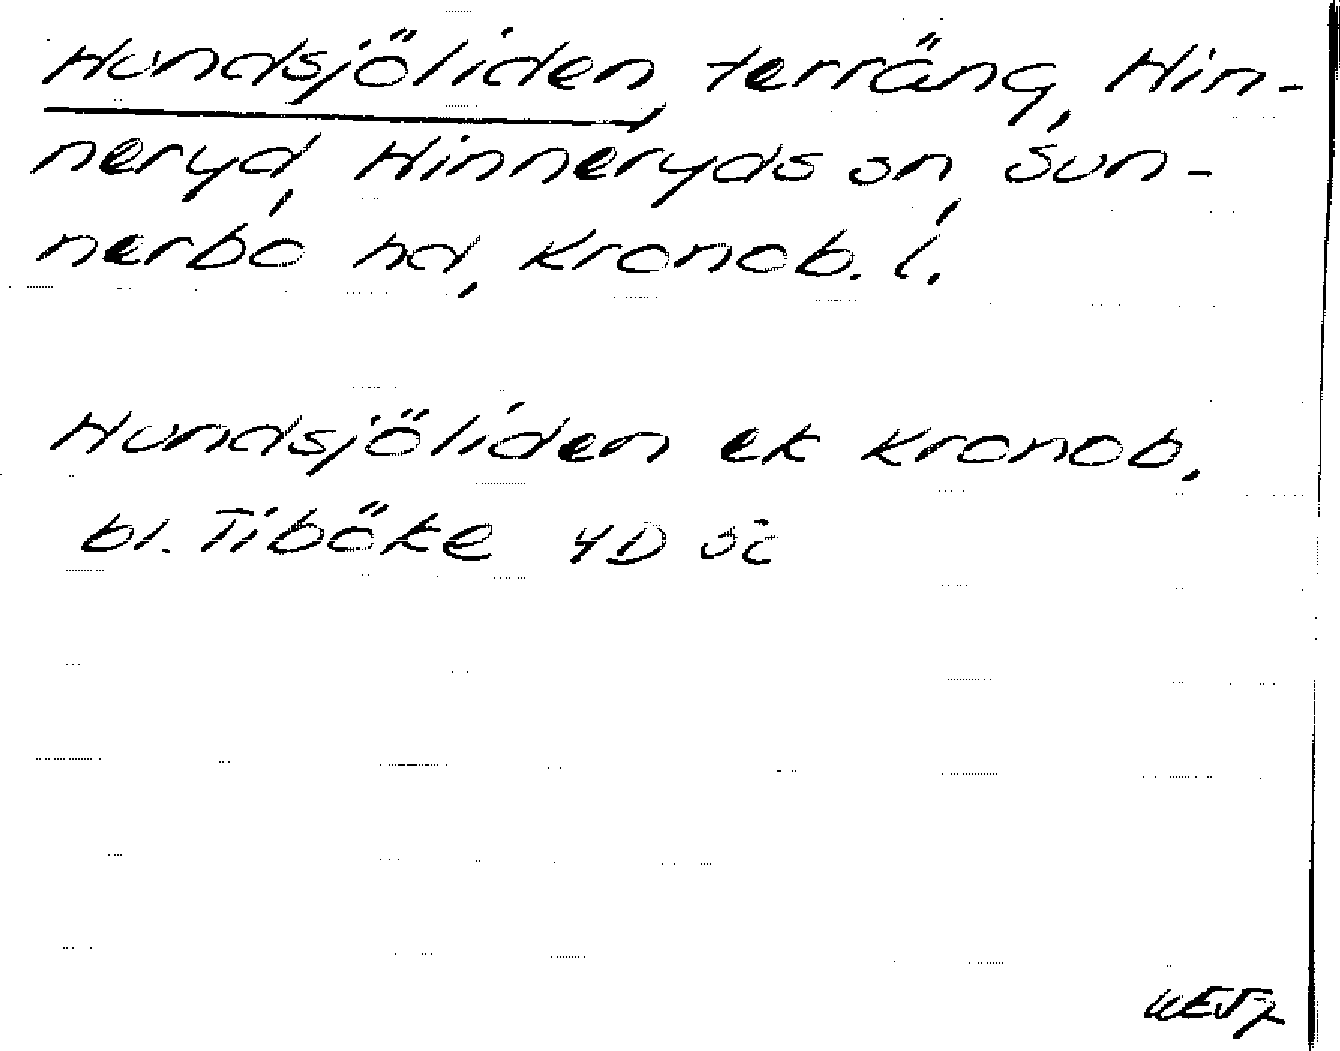 Hundsjöliden, terräng, Hin-
neryd, Hinneryds sn, Sun-
nerbo hd, Kronob. l.
Hundsjöliden ek Kronob.
bl. Tiböke 4D